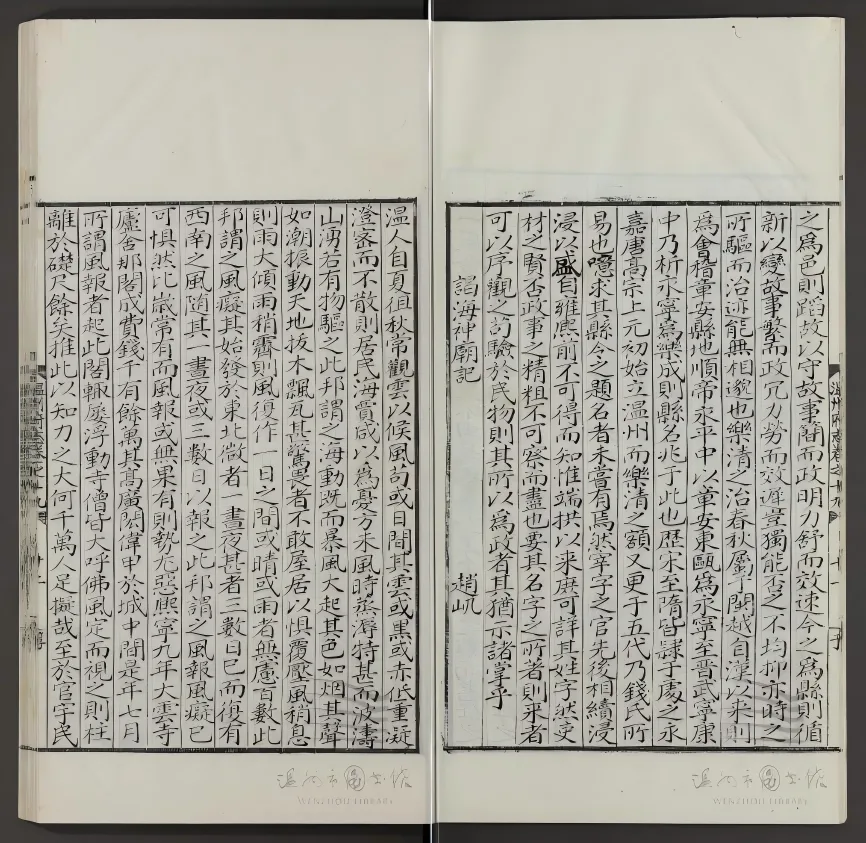 之爲邑則蹈故以守故事簡而政明力舒而效速今之爲縣則循
新以變故事繁而政冗力勞而效遲豈獨能否之不均抑亦時之
所驅而治迹能無相邈也樂清之治春秋屬于閩越自漢以來則
爲會稽章安縣地順帝永平中以章安東甌爲永寧至晉武寧康
中乃析永寧爲樂成則縣名兆于此也歴宋至隋皆隷于處之永
嘉唐髙宗上元初始立溫州而樂清之額又更于五代乃錢氏所
易也噫求其縣令之題名者未嘗有焉然宰字之官先後相續浸
浸以盛自雍熈前不可得而知惟端拱以来庶可詳其姓字然吏
材之賢否政事之精粗不可察而盡也要其名字之所著則来者
可以序觀之訂驗於民物則其所以爲政者其猶示諸掌乎
謁海神廟記 趙屼
溫人自夏徂秋常觀雲以候風茍或日間其雲或黒或赤低重凝
澄宻而不散則居民海賈咸以爲憂方未風時蒸溽特甚而波濤
山湧若有物驅之此邦謂之海動既而暴風大起其色如烟其聲
如潮振動天地拔木飄瓦甚驚者不敢屋居以惧覆壓風稍息
則雨大傾雨稍霽則風復作一日之間或晴或雨者無慮百數此
邦謂之風癡其始發於東北微者一晝夜甚者三數日已而復有
西南之風随其一晝夜或三數日以報之此邦謂之風報風癡已
可惧然比嵗常有而風報或無果有則勢尤惡熈寧九年大雲寺
廬舍那閣成費錢千有餘萬其髙廣閎偉甲於城中間是年七月
所謂風報者起此閣輒屢浮動寺僧皆大呼佛風定而視之則柱
離於礎尺餘矣推此以知力之大何千萬人足擬哉至於官宇民
溫州府志卷之十九
十一
溫州府志卷之十九
十二
溫州市圖書館
WENZHOU LIBRARY
溫州市圖書館
WENZHOU LIBRARY